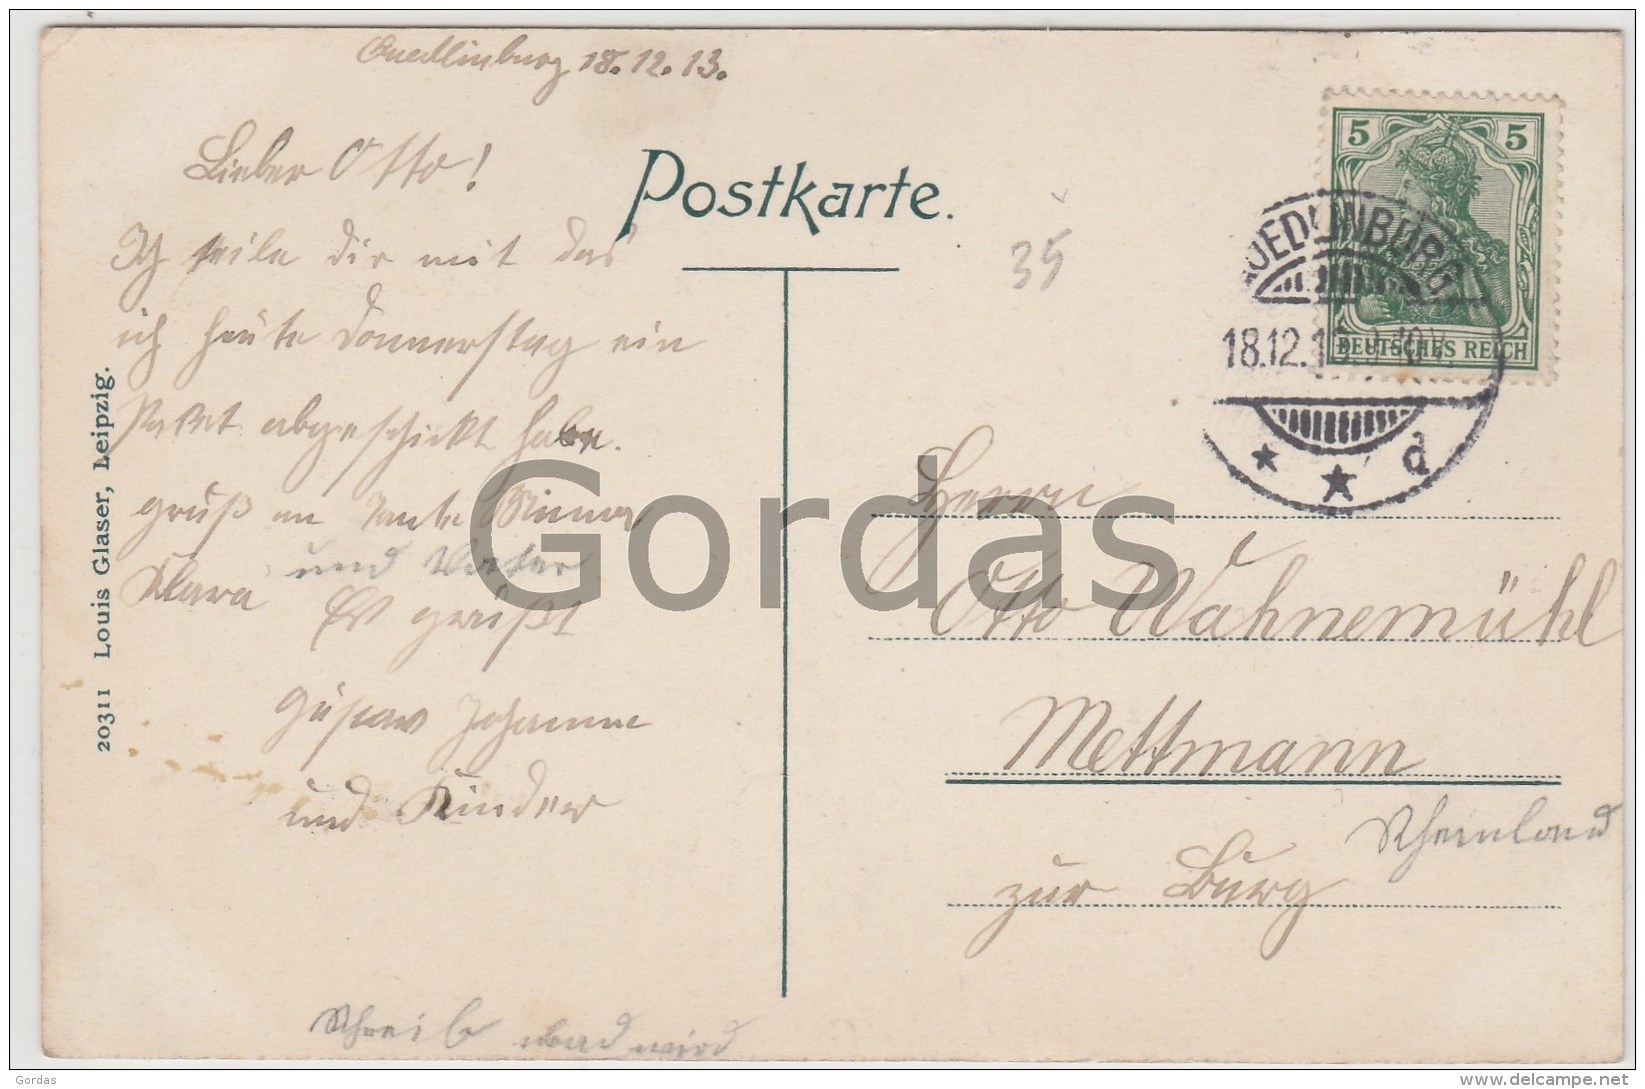 Quedlinburg 18.12.13.
Lieber Otto!
Ich teile dir mit das
ich heute Donnerstag ein
Paket abgeschickt habe.
gruß an Tante Minna
Klara und Vater
Es grüßt
Gustav Johanne
und Kinder
Schreib
wird
20311 Louis Glaser, Leipzig.
Postkarte.
35
5 5
DEUTSCHES REICH
QUEDLINBURG
18.12.13
d
Herrn
Otto Wahnemühl
Mettmann
Rheinland
zur Burg
Gordas
Gordas
www.delcampe.net